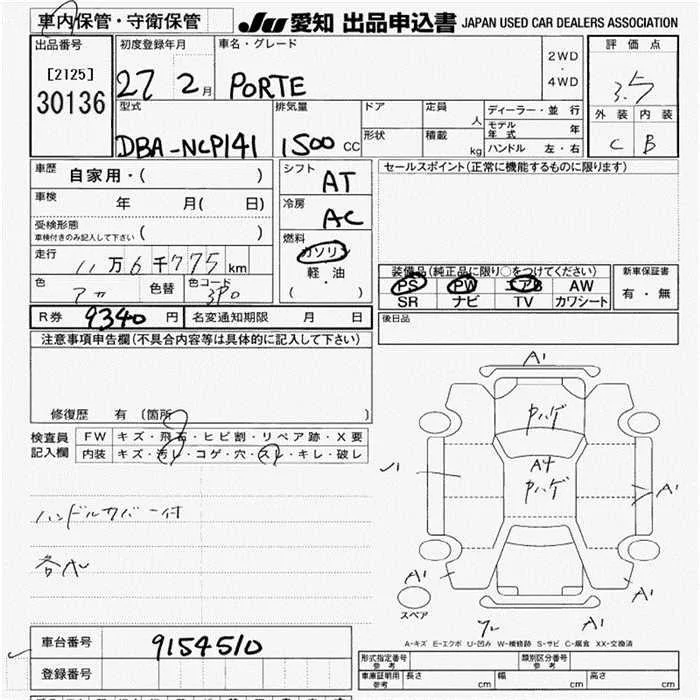 車内保管・守衛保管 JU 愛知 出品申込書 JAPAN USED CAR DEALERS ASSOCIATION
出品番号 初度登録年月 車名・グレード 2WD ・ 4WD 評価点
[2125]
30136 27 2月 PORTE 3.5
型式 排気量 ドア 定員 人 ディーラー・並行 外装 内装
モデル年式 年
DBA-NCP141 1500 CC 形状 積載 kg ハンドル 左・右 C B
車歴 自家用・( ) シフト AT セールスポイント(正常に機能するものに限ります)
車検 年 月( 日) 冷房 AC
受検形態
車検付きのみ記入して下さい ( )
燃料 ガソリン
走行 11万6千775km 軽油 装備品(純正品に限り○をつけてください) 新車保証書
・ PS PW エアB AW 有・無
色 色替 色コード 3P0 ( ) SR ナビ TV カワシート
R券 9340円 名変通知期限 月 日 後日品
注意事項申告欄(不具合内容等は具体的に記入して下さい)
修復歴 有 〔箇所 〕
検査員 FW キズ・飛石・ヒビ割・リペア跡・X要
記入欄 内装 キズ・汚レ・コゲ・穴・スレ・キレ・破レ
ハンドルカバー付
A1
A4
A1
A1
A1
A1
A1
スペア
A-キズ E-エクボ U-凹み W-補修跡 S-サビ C-腐食 XX-交換済
車台番号 9154510
登録番号
形式指定番号 参考 類別区分番号 参考
車庫証明用 参考 長さ cm 幅 cm 高さ cm